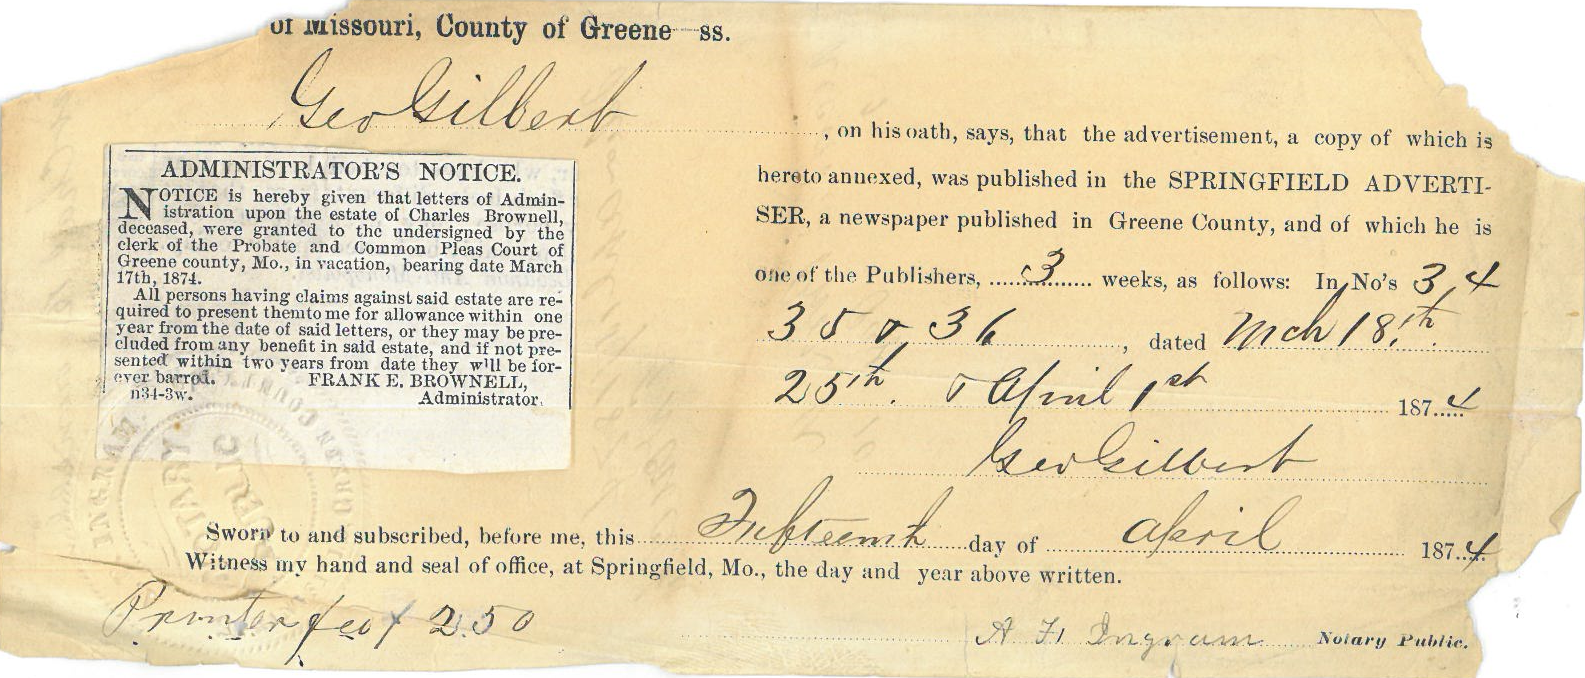 of Missouri, County of Greene--ss.
Geo Gilbert
, on his oath, says, that the advertisement, a copy of which is
hereto annexed, was published in the SPRINGFIELD ADVERTI-
SER, a newspaper published in Greene County, and of which he is
one of the Publishers, 3 weeks, as follows: In No's 34
35 & 36, dated Mch 18th
25th. & April 1st 1874
Geo Gilbert
ADMINISTRATOR'S NOTICE.
NOTICE is hereby given that letters of Admin-
istration upon the estate of Charles Brownell,
deceased, were granted to the undersigned by the
clerk of the Probate and Common Pleas Court of
Greene county, Mo., in vacation, bearing date March
17th, 1874.
All persons having claims against said estate are re-
quired to present themto me for allowance within one
year from the date of said letters, or they may be pre-
cluded from any benefit in said estate, and if not pre-
sented within two years from date they will be for-
ever barred. FRANK E. BROWNELL,
n34-3w. Administrator.
Sworn to and subscribed, before me, this Fifteenth day of April 1874.
Witness my hand and seal of office, at Springfield, Mo., the day and year above written.
Printer fee $ 2.50
A F Ingram Notary Public.
INGRAM
NOTARY
PUBLIC
GREEN COUNTY